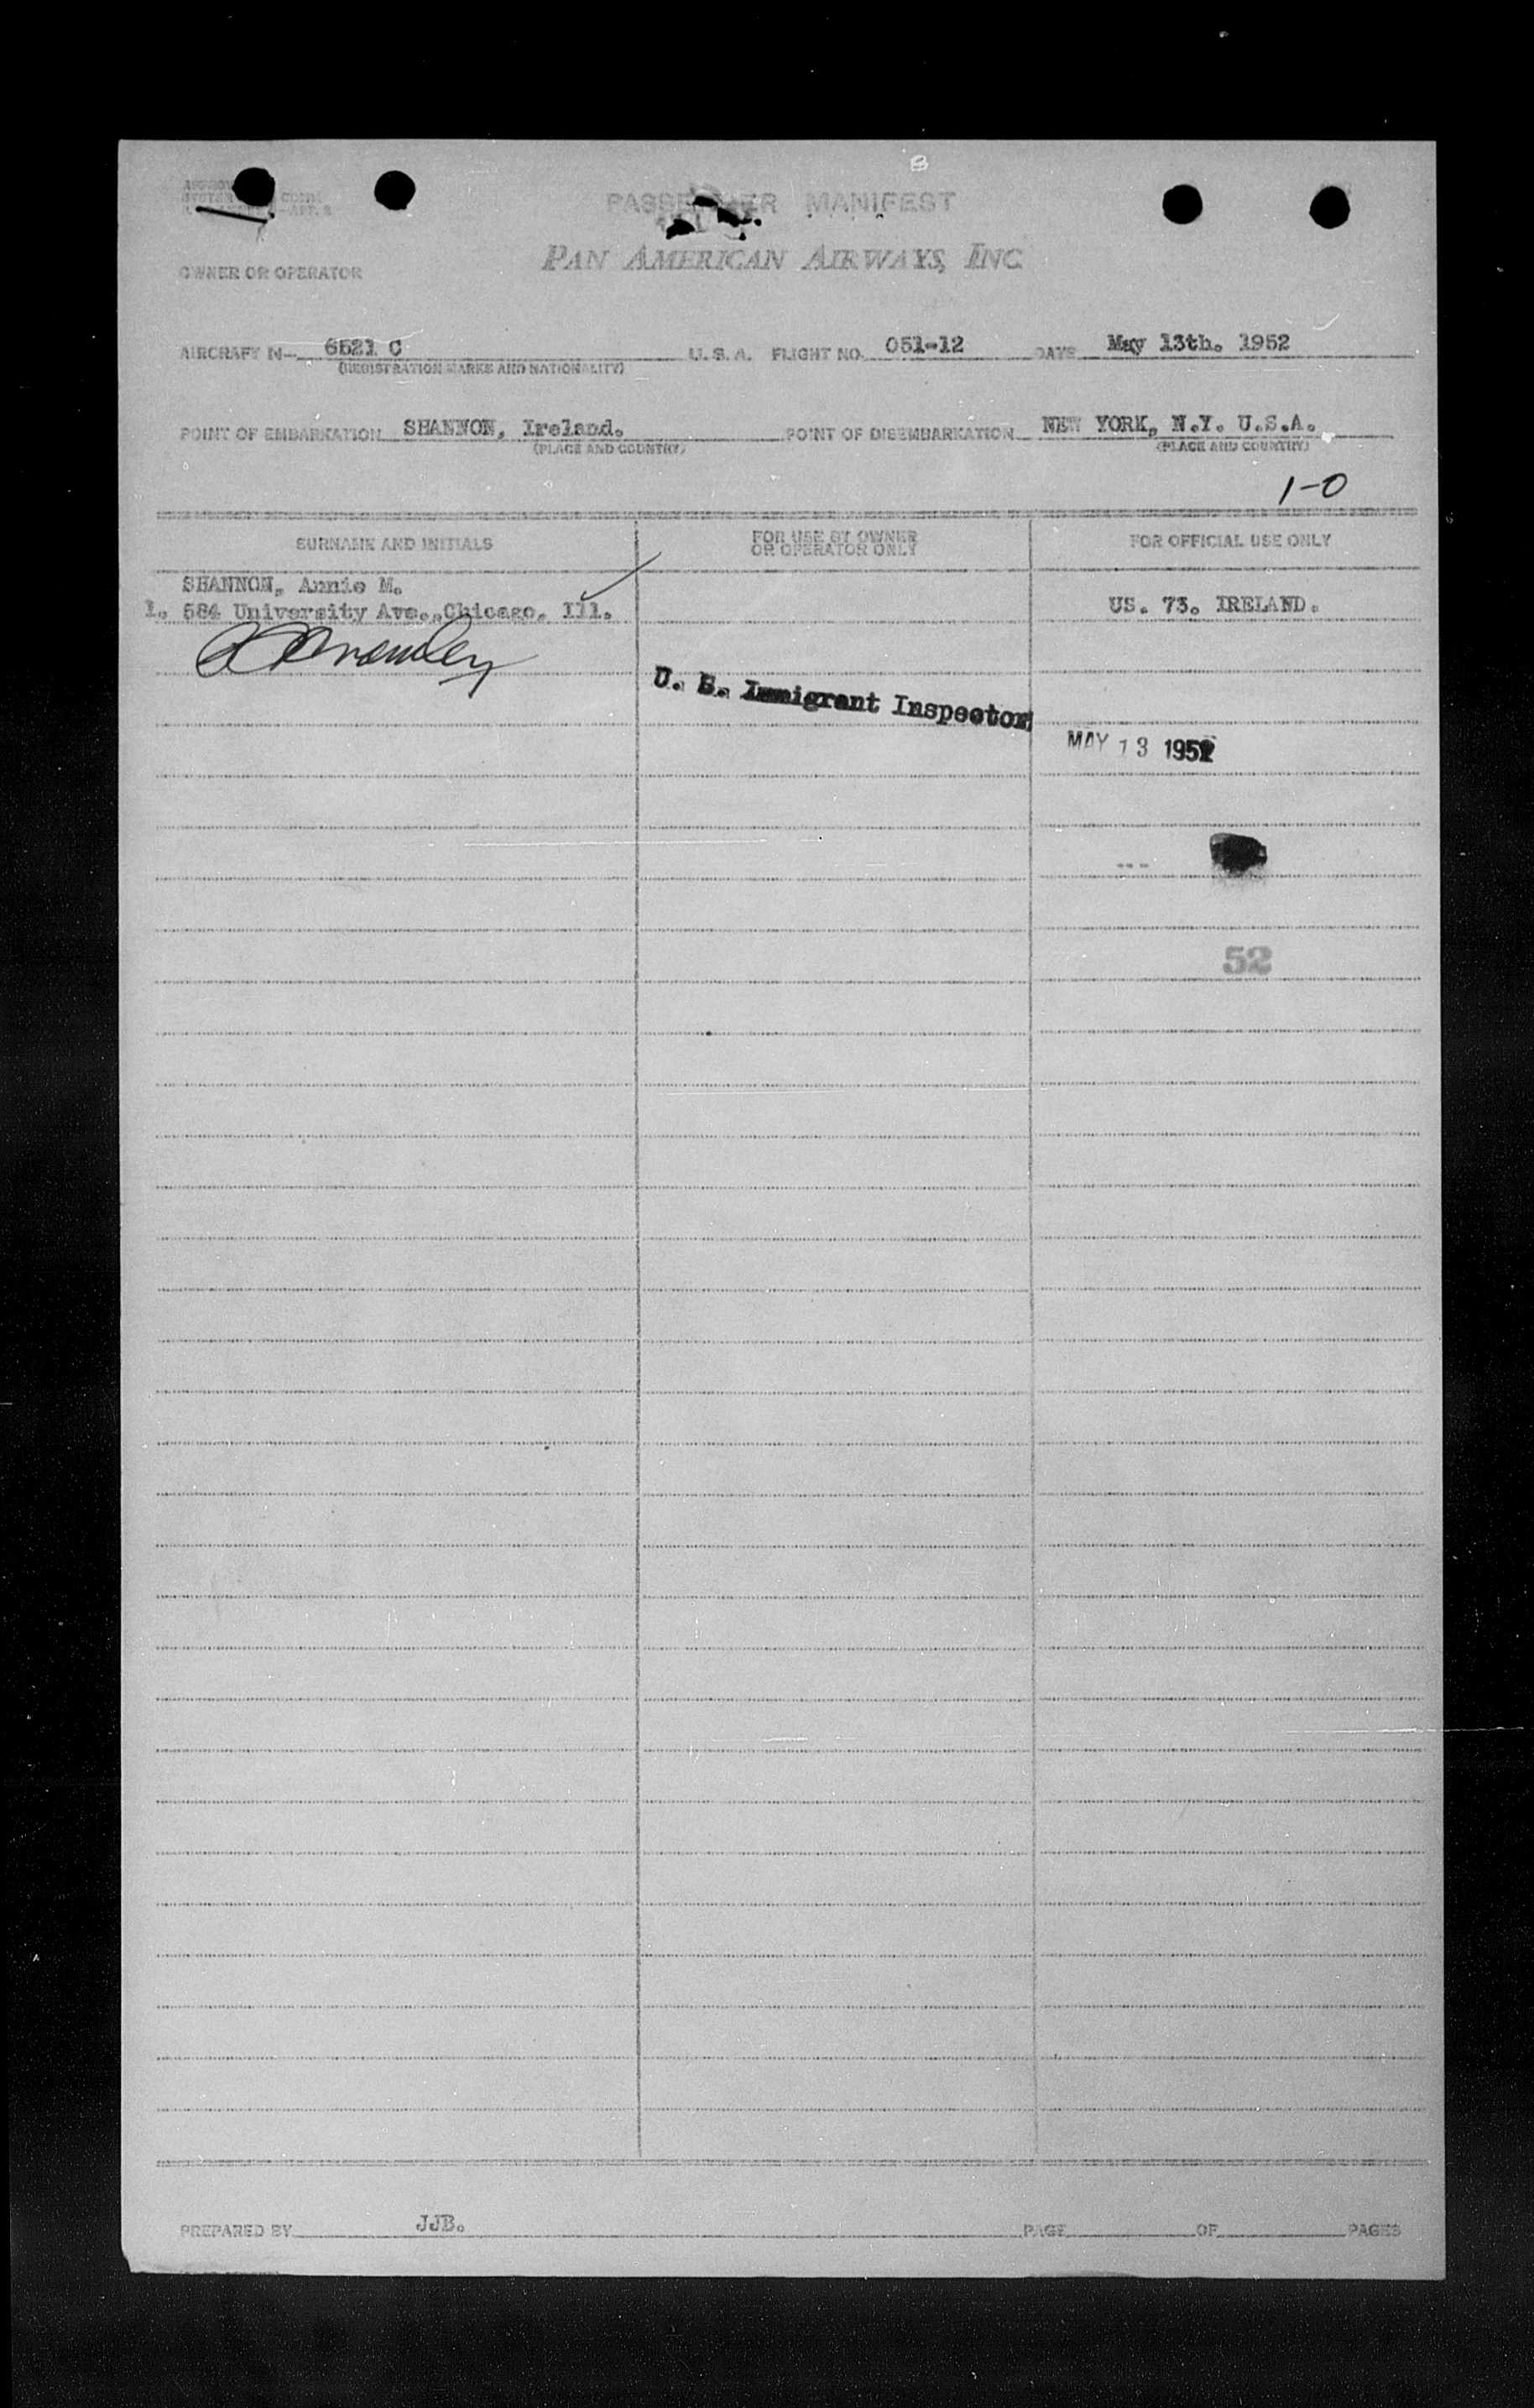 B
PASSENGER MANIFEST
PAN AMERICAN AIRWAYS, INC
OWNER OR OPERATOR
AIRCRAFT N— 6521 C U. S. A. FLIGHT NO. 051-12 DATE May 13th. 1952
(REGISTRATION MARKS AND NATIONALITY)
POINT OF EMBARKATION SHANNON, Ireland. POINT OF DISEMBARKATION NEW YORK, N.Y. U.S.A.
(PLACE AND COUNTRY) (PLACE AND COUNTRY)
1-0
SURNAME AND INITIALS FOR USE BY OWNER OR OPERATOR ONLY FOR OFFICIAL USE ONLY
SHANNON, Annie M.
1. 584 University Ave.,Chicago. Ill. US. 73. IRELAND.
U. S. Immigrant Inspector
MAY 13 1952
52
PREPARED BY JJB. PAGE OF PAGES